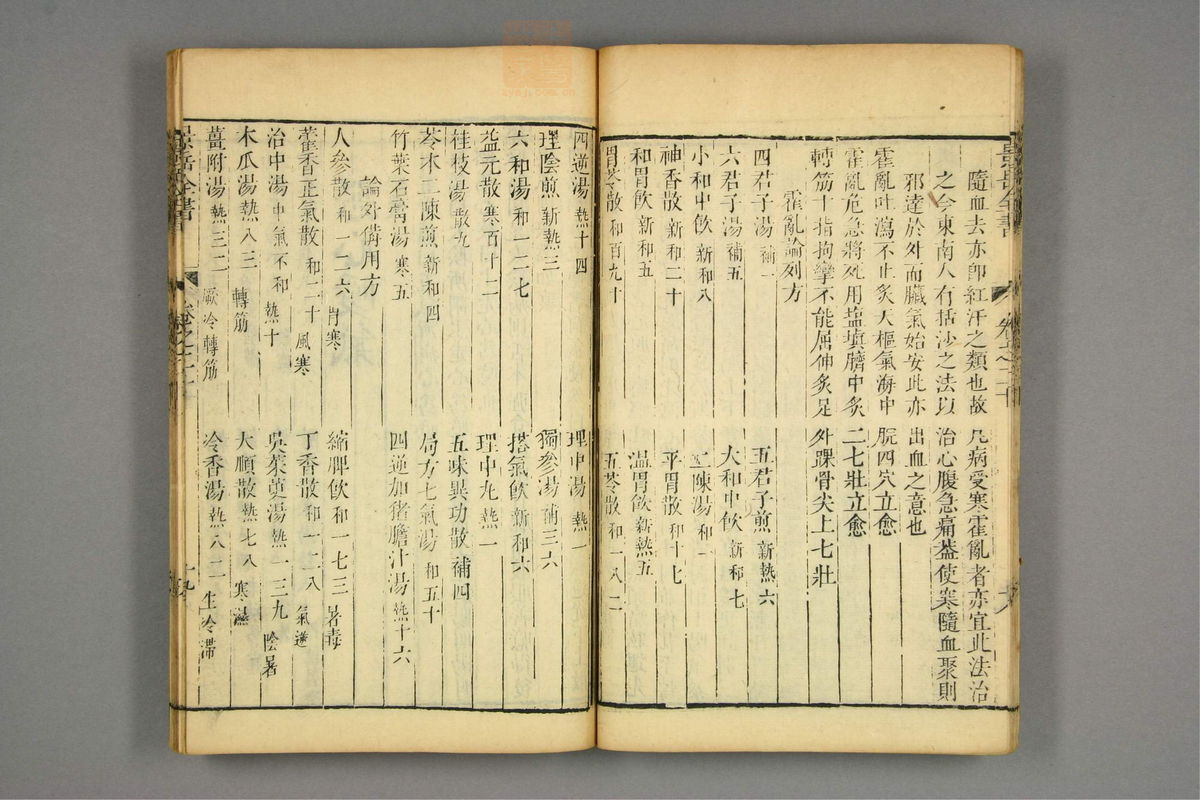 隨血去亦卽紅汗之類也故凡病受寒霍亂者亦宜此法治
之今東南人有括沙之法以治心腹急痛葢使寒隨血聚則
邪達於外而臟氣始安此亦出血之意也
霍亂吐瀉不止炙天樞氣海中脘四穴立愈
霍亂危急將死用塩填臍中炙二七壯立愈
轉筋十指拘攣不能屈伸炙足外踝骨尖上七壯
霍亂論列方
四君子湯 補一 五君子煎 新熱六
六君子湯 補五 大和中飲 新和七
小和中飲 新和八 二陳湯 和一
神香散 新和二十 平胃散 和十七
和胃飲 新和五 溫胃飲 新熱五
胃苓散 和百九十 五苓散 和一八二
四逆湯 熱十四 理中湯 熱一
理陰煎 新熱三 獨參湯 補三六
六和湯 和一二七 搭氣飲 新和六
益元散 寒百十二 理中丸 熱一
桂枝湯 散九 五味異功散 補四
苓术二陳煎 新和四 局方七氣湯 和五十
竹葉石膏湯 寒五 四逆加猪膽汁湯 熱十六
論外備用方
人參散 和一二六 胃寒 縮脾飲 和一七三 暑毒
藿香正氣散 和二十 風寒 丁香散 和一二八 氣逆
治中湯 中氣不和 熱十 吳茱萸湯 熱一三九 陰暑
木瓜湯 熱八三 轉筋 大順散 熱七八 寒濕
薑附湯 熱三二 厥冷轉筋 冷香湯 熱八二 生冷滯
景岳全書
卷之二十
十九